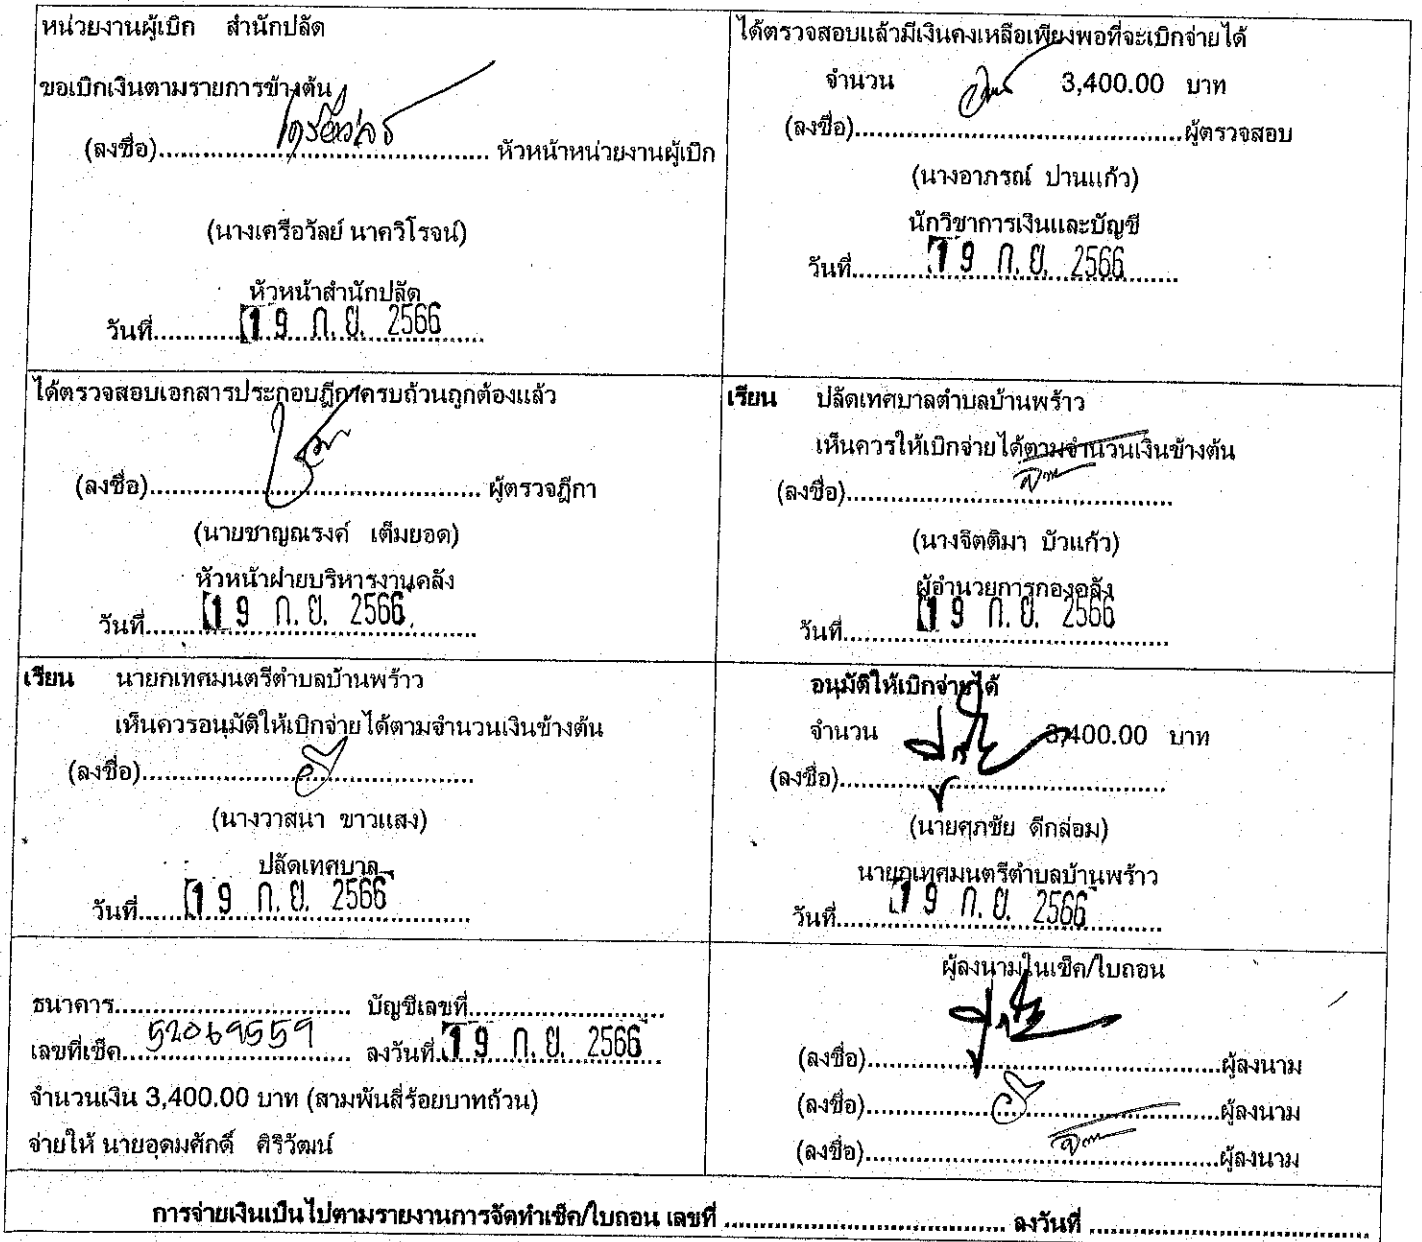 หน่วยงานผู้เบิก สำนักปลัด
ขอเบิกเงินตามรายการข้างต้น
(ลงชื่อ)........................................ หัวหน้าหน่วยงานผู้เบิก
(นางเครือวัลย์ นาควิโรจน์)
หัวหน้าสำนักปลัด
วันที่........19 ก.ย. 2566........
ได้ตรวจสอบแล้วมีเงินคงเหลือเพียงพอที่จะเบิกจ่ายได้
จำนวน 3,400.00 บาท
(ลงชื่อ)........................................ผู้ตรวจสอบ
(นางอาภรณ์ ปานแก้ว)
นักวิชาการเงินและบัญชี
วันที่........19 ก.ย. 2566........
ได้ตรวจสอบเอกสารประกอบฎีกาครบถ้วนถูกต้องแล้ว
(ลงชื่อ)........................................ ผู้ตรวจฎีกา
(นายชาญณรงค์ เต็มยอด)
หัวหน้าฝ่ายบริหารงานคลัง
วันที่........19 ก.ย. 2566........
เรียน ปลัดเทศบาลตำบลบ้านพร้าว
เห็นควรให้เบิกจ่ายได้ตามจำนวนเงินข้างต้น
(ลงชื่อ)........................................
(นางจิตติมา บัวแก้ว)
ผู้อำนวยการกองคลัง
วันที่........19 ก.ย. 2566........
เรียน นายกเทศมนตรีตำบลบ้านพร้าว
เห็นควรอนุมัติให้เบิกจ่ายได้ตามจำนวนเงินข้างต้น
(ลงชื่อ)........................................
(นางวาสนา ขาวแสง)
ปลัดเทศบาล
วันที่........19 ก.ย. 2566........
อนุมัติให้เบิกจ่ายได้
จำนวน 3,400.00 บาท
(ลงชื่อ)........................................
(นายศุภชัย ดีกล่อม)
นายกเทศมนตรีตำบลบ้านพร้าว
วันที่........19 ก.ย. 2566........
ธนาคาร............................ บัญชีเลขที่........................
เลขที่เช็ค....52069559.... ลงวันที่.19 ก.ย. 2566..
จำนวนเงิน 3,400.00 บาท (สามพันสี่ร้อยบาทถ้วน)
จ่ายให้ นายอุดมศักดิ์ ศิริวัฒน์
ผู้ลงนามในเช็ค/ใบถอน
(ลงชื่อ)........................................ผู้ลงนาม
(ลงชื่อ)........................................ผู้ลงนาม
(ลงชื่อ)........................................ผู้ลงนาม
การจ่ายเงินเป็นไปตามรายงานการจัดทำเช็ค/ใบถอน เลขที่ ................................ ลงวันที่ ................................